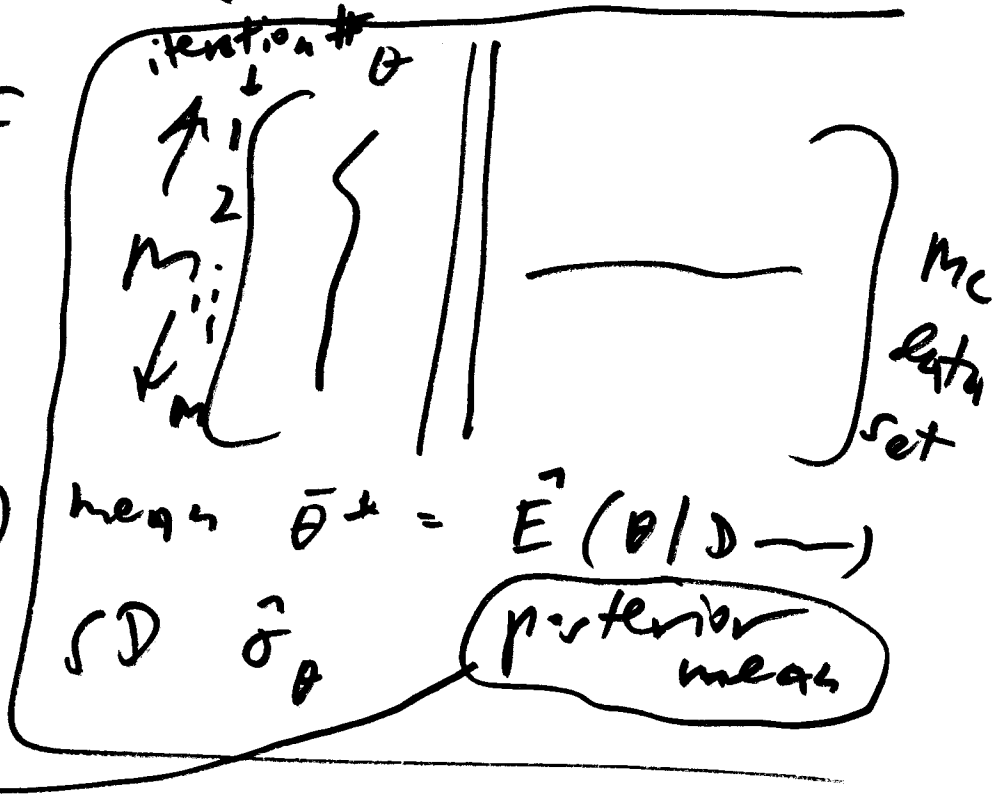 iteration #
θ
1
2
M
:
M
MC
data
set
mean θ̄* = Ê (θ | D —)
SD σ̂θ
posterior
mean